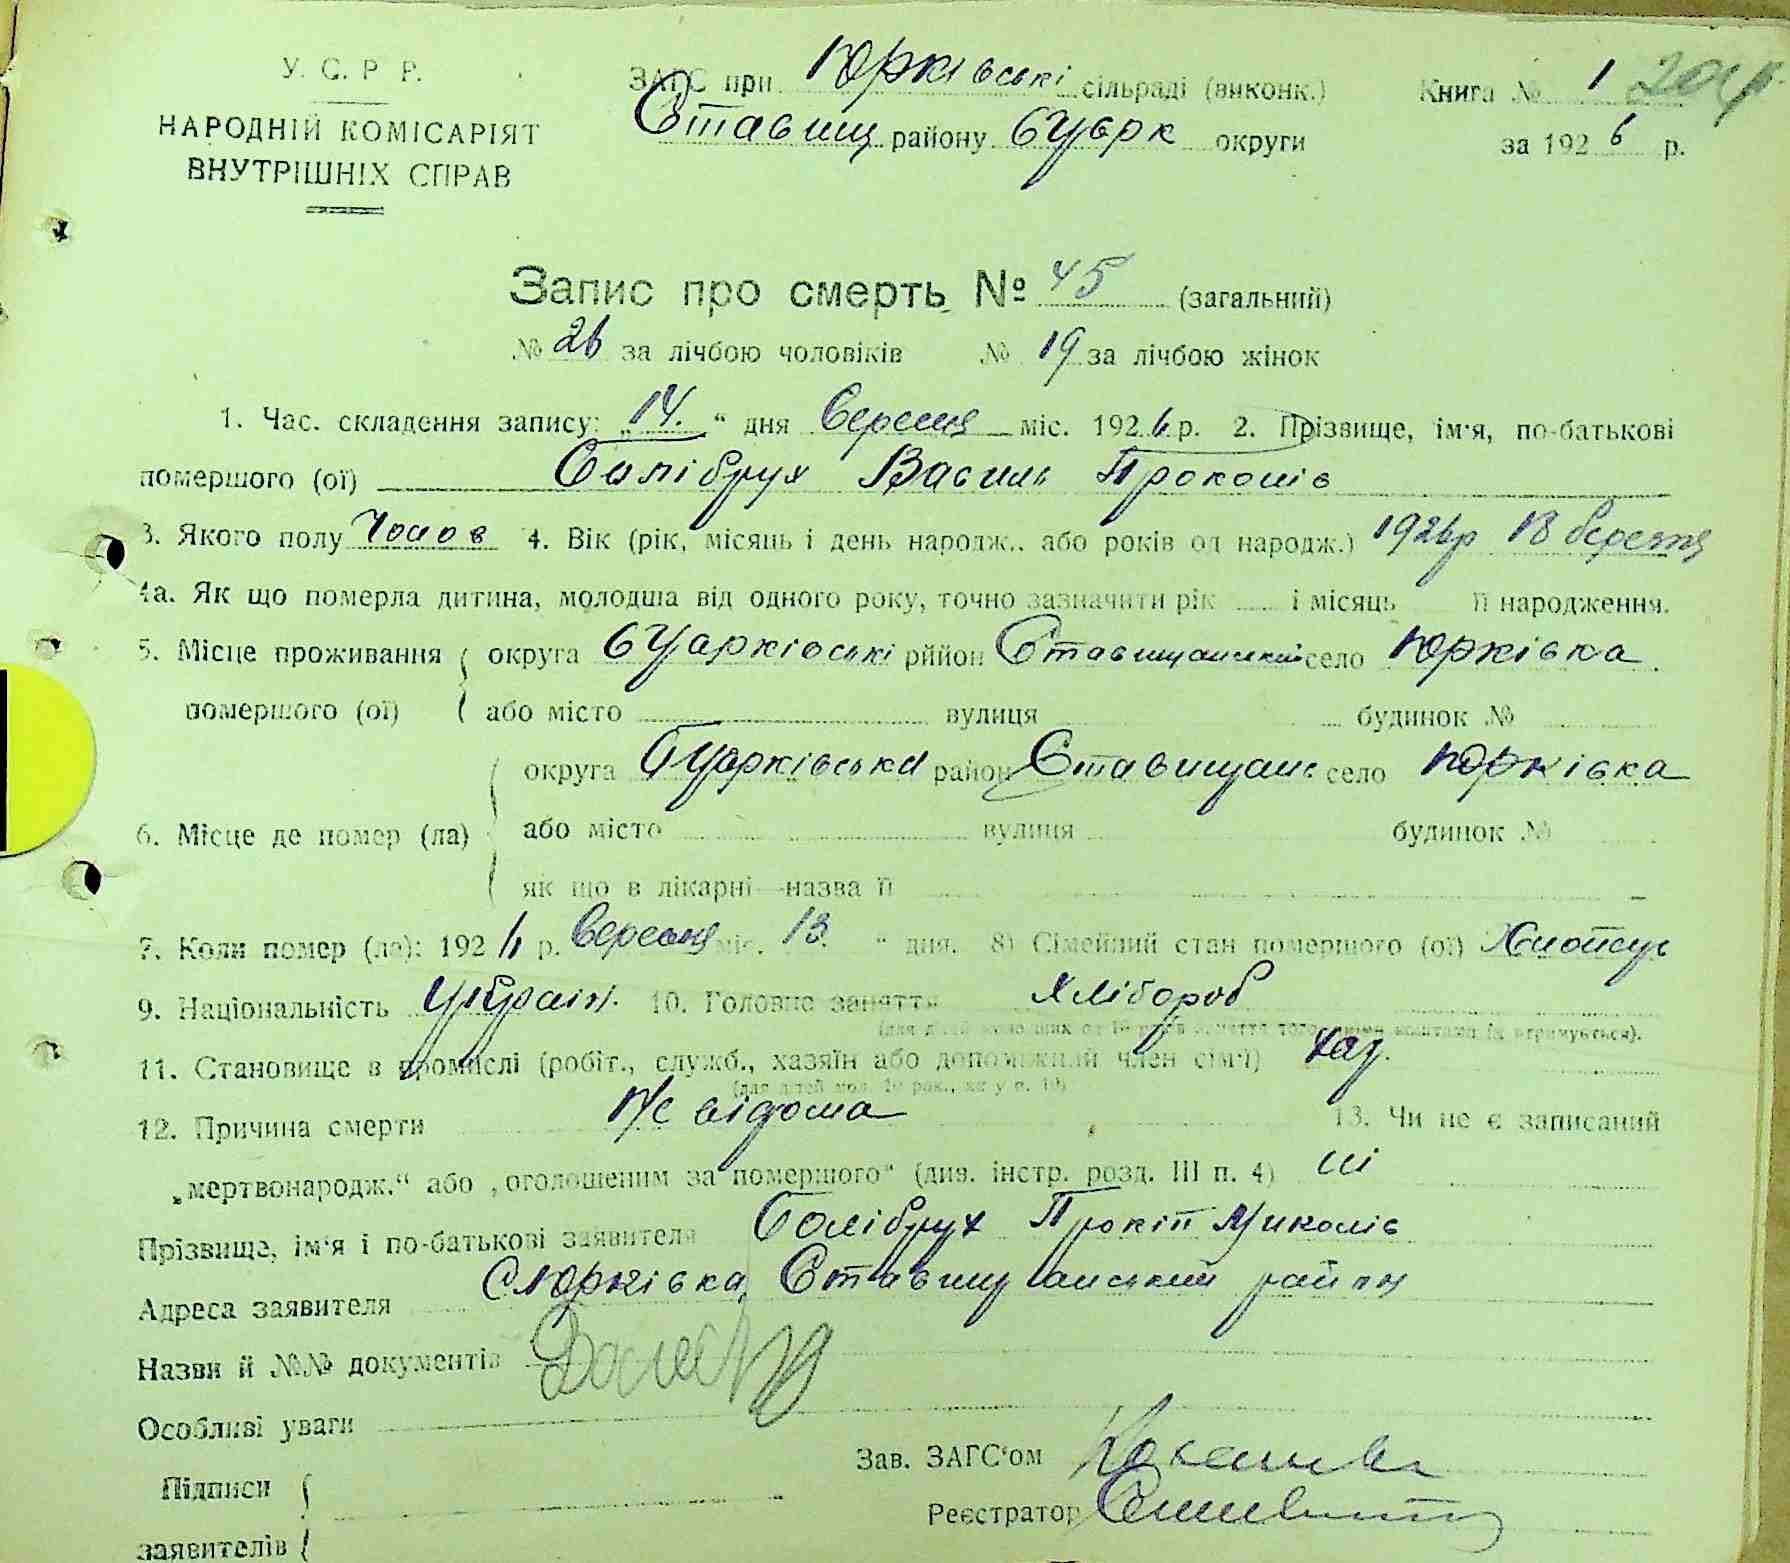 У. С. Р Р.
НАРОДНІЙ КОМІСАРІЯТ
ВНУТРІШНІХ СПРАВ
ЗАГС при Юрківські сільраді (виконк.)
Ставищ району БЦерк округи
Книга № 1
за 1926 р.
Запис про смерть № 45 (загальний)
№ 26 за лічбою чоловіків № 19 за лічбою жінок
1. Час. складення запису: „14.“ дня Вересня міс. 1926 р. 2. Прізвище, ім'я, по-батькові
помершого (ої) Голібрух Василь Прокопів
3. Якого полу Чолов 4. Вік (рік, місяць і день народж.. або років од народж.) 1926р 13 березня
4а. Як що померла дитина, молодша від одного року, точно зазначити рік і місяць її народження.
5. Місце проживання округа БЦарківські рййон Ставищанский село Юрківка
помершого (ої) або місто вулиця будинок №
округа БЦарківська район Ставищанс село Юрківка
6. Місце де помер (ла) або місто вулиця будинок №
як що в лікарні—назва її
7. Коли помер (ла): 1926 р. Вересня міс. 13. “ дня. 8) Сімейний стан помершого (ої) Хлопець
9. Національність Україн. 10. Головне заняття Хлібороб
11. Становище в промислі (робіт., служб., хазяїн або допоміжний член сім'ї) Хаз.
12. Причина смерти Не відома 13. Чи не є записаний
„мертвонародж.“ або „оголошеним за помершого“ (див. інстр. розд. III п. 4) ні
Прізвище, ім'я і по-батькові заявителя Голібрух Прокіп Миколів
Адреса заявителя С Юрківка Ставищанський район
Назви й №№ документів
Особливі уваги
Зав. ЗАГС'ом
Підписи
Реєстратор
заявителів